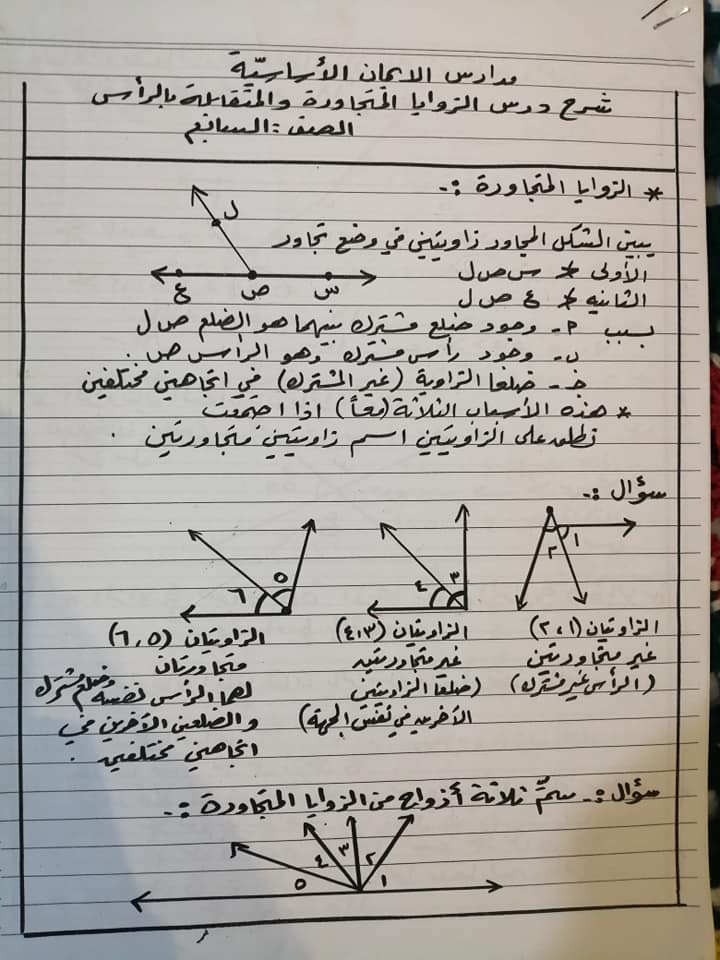 مدارس الايمان الأساسيّة
شرح درس الزوايا المتجاورة والمتقابلة بالرأس
الصف : السابع
* الزوايا المتجاورة :-
ل
يبين الشكل المجاور زاويتين في وضع تجاور
الأولى ∢ س ص ل
ع ص س
الثانيه ∢ ع ص ل
بسبب ٢- وجود ضلع مشترك بينهما هو الضلع ص ل
ب- وجود رأس مشترك وهو الرأس ص .
ج- ضلعا الزاوية (غير المشترك) في اتجاهين مختلفين
* هذه الأسباب الثلاثة (معاً) اذا اجتمعت
نطلق على الزاويتين اسم زاويتين متجاورتين .
سؤال :-
١ ٢
٣ ٤
٥ ٦
الزاويتان (١ ، ٢)
غير متجاورتين
(الرأس غير مشترك)
الزاويتان (٣ ، ٤)
غير متجاورتين
(ضلعا الزاويتين
الآخرين في نفس الجهة)
الزاويتان (٥ ، ٦)
متجاورتان
لهما الرأس نفسه وضلع مشترك
والضلعين الآخرين في
اتجاهين مختلفين .
سؤال :- سمِّ ثلاثة أزواج من الزوايا المتجاورة :-
١ ٢ ٣ ٤ ٥